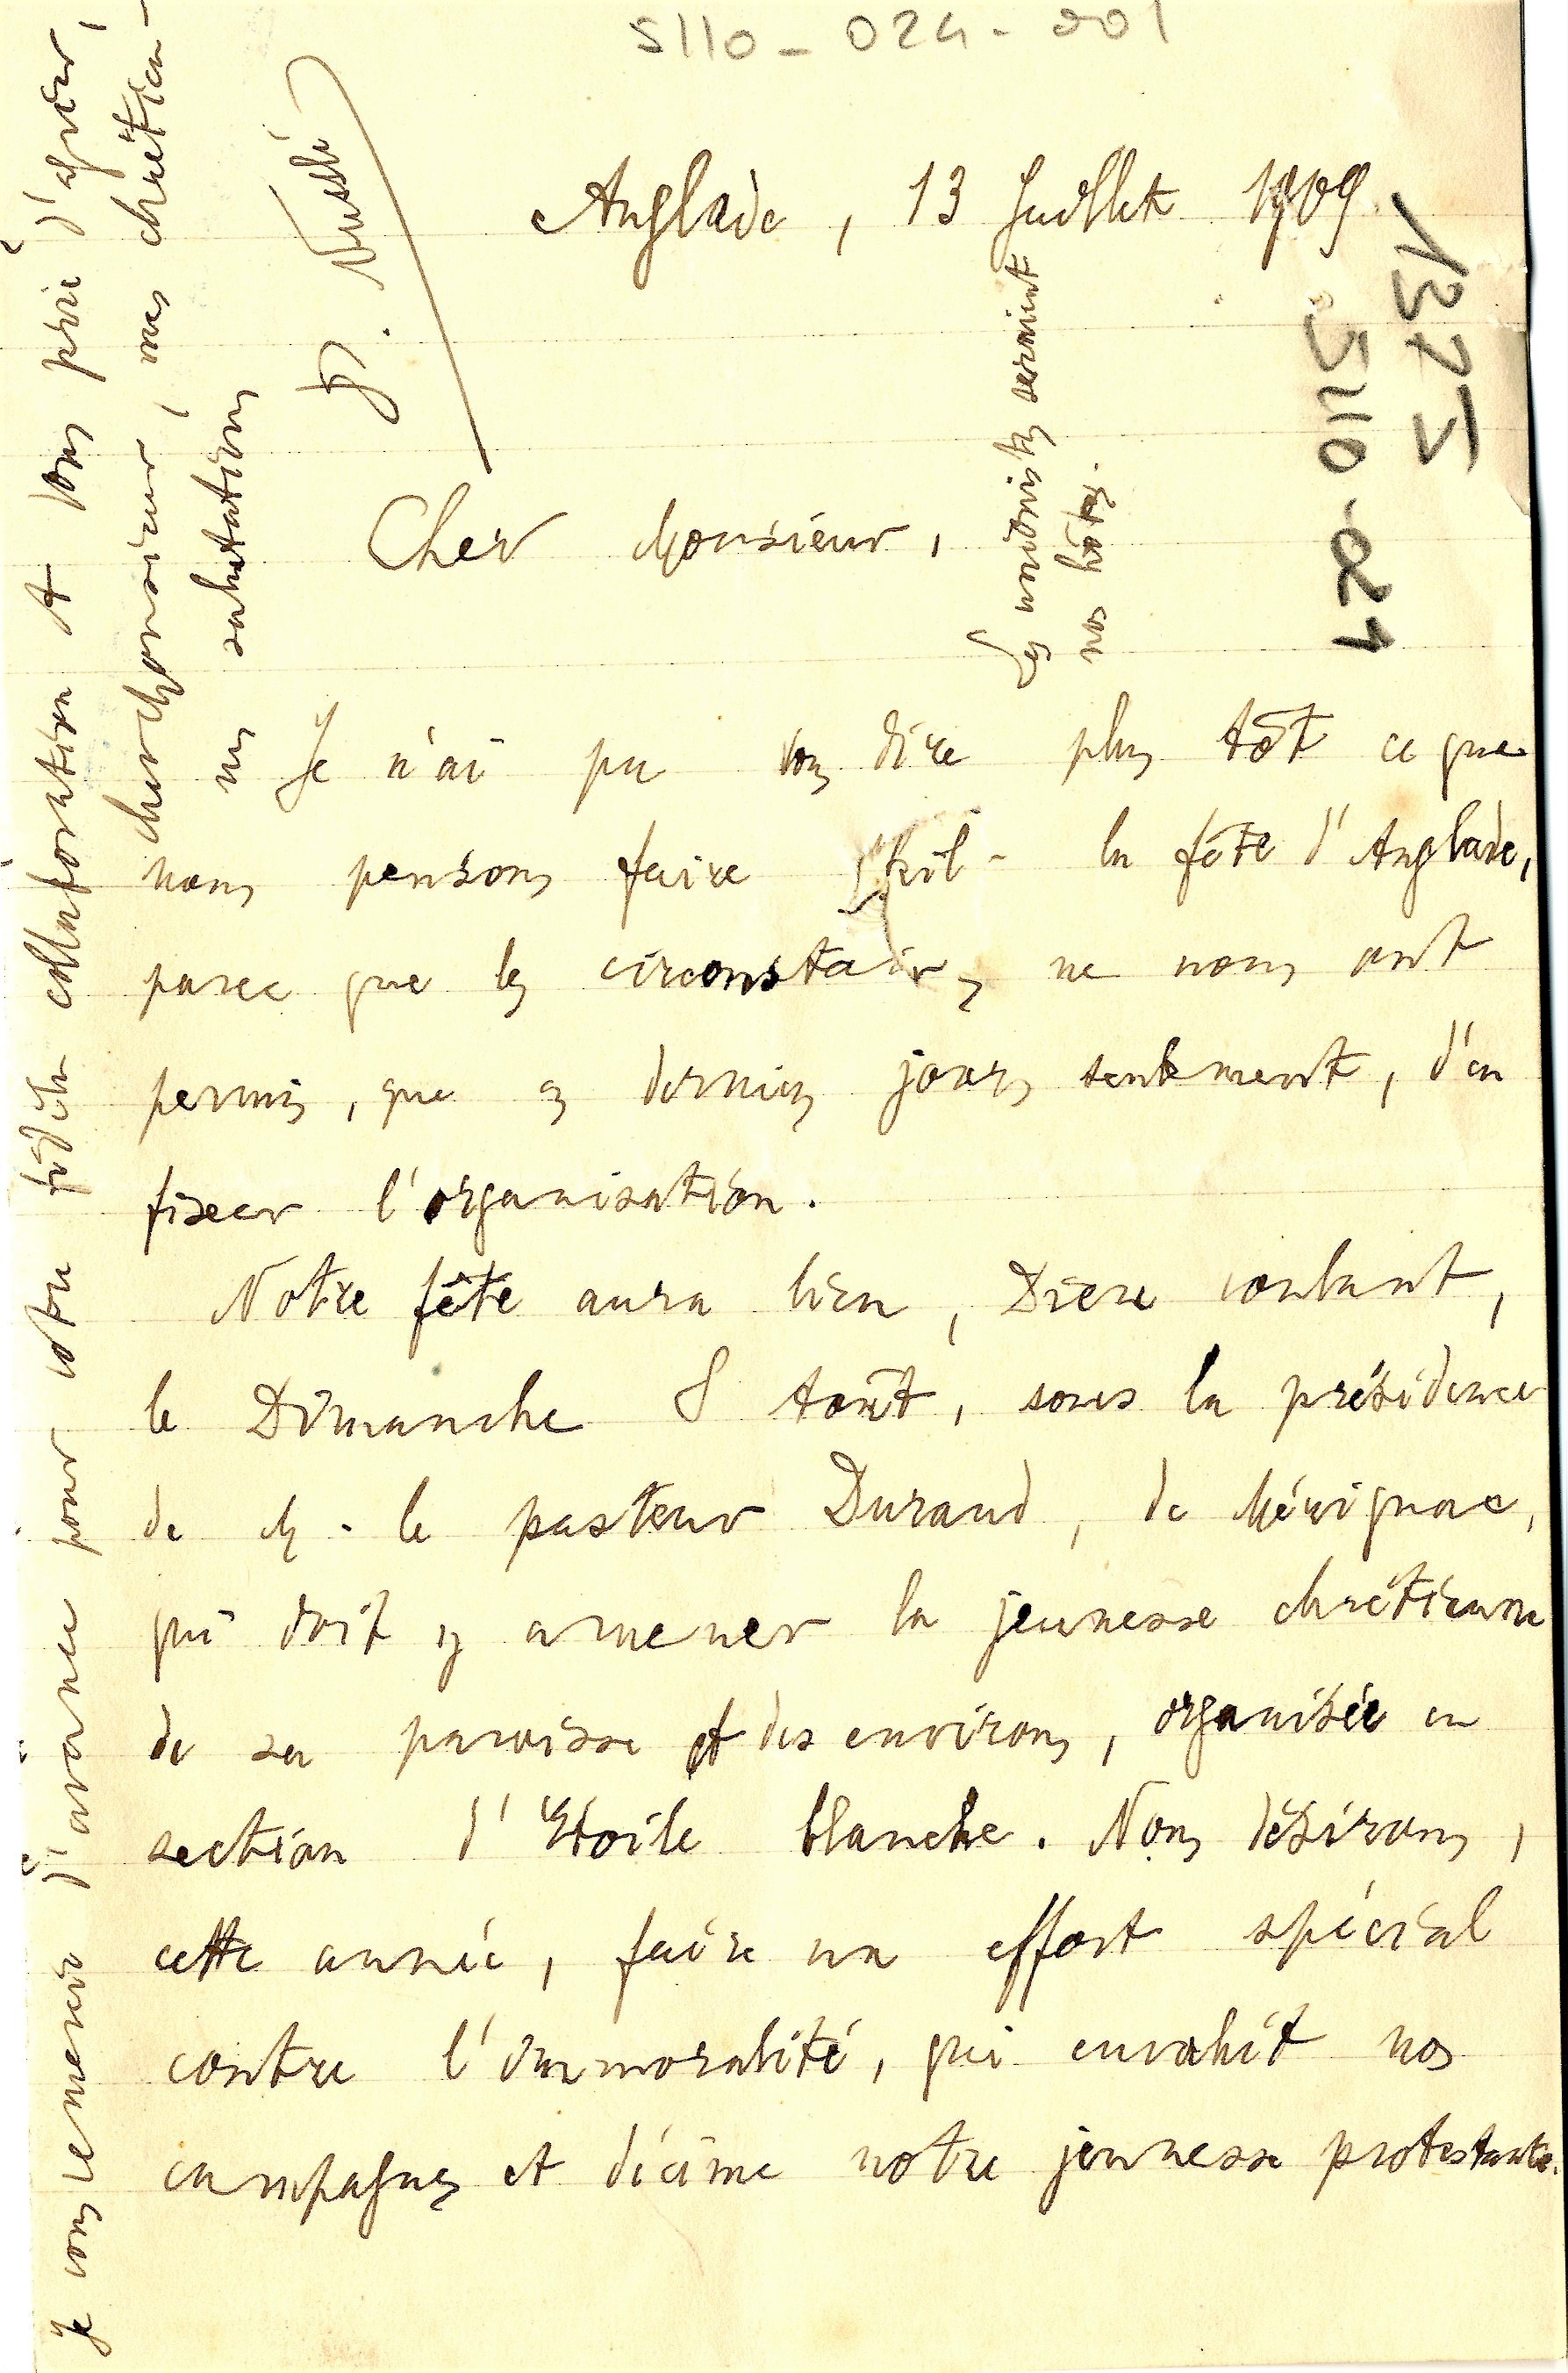 5110-024-001
Anglade, 13 Juillet 1909.
1375
5110-024
Cher Monsieur,
Je n'ai pu vous dire plus tôt ce que
nous pensons faire la fête d'Anglade,
parce que les circonstances ne nous ont
permis, que ces derniers jours seulement, d'en
fixer l'organisation.
Notre fête aura lieu, Dieu voulant,
le Dimanche 8 Août, sous la présidence
de M. le pasteur Durand, de Mérignac,
qui doit y amener la jeunesse chrétienne
de sa paroisse et des environs, organisée en
section d'Etoile blanche. Nous désirons,
cette année, faire un effort spécial
contre l'immoralité, qui envahit nos
campagnes et décime notre jeunesse protestante.
Les unionistes seraient
nos hôtes.
Je vous remercie d'avance pour votre fidèle collaboration et vous prie d'agréer,
cher Monsieur, mes chrétien-
nes salutations